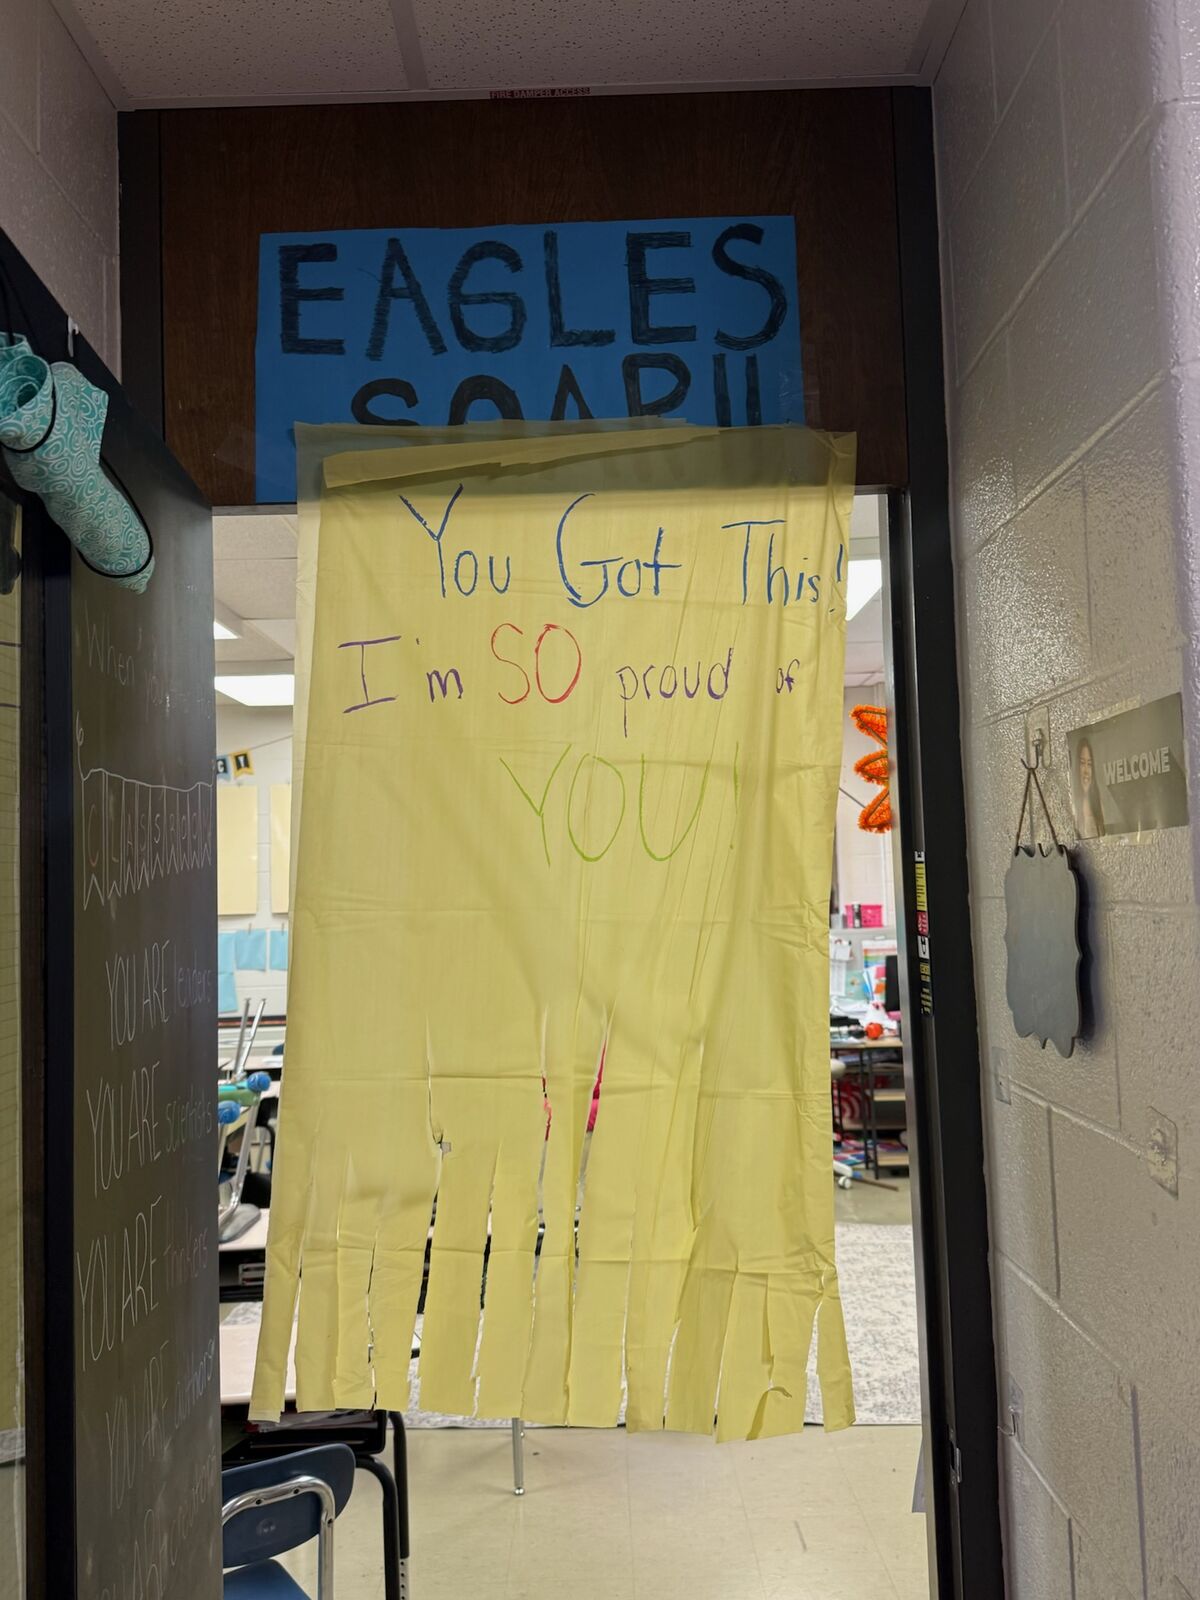 FIRE DAMPER ACCESS
EAGLES
SOAR!!
You Got This!
I'm SO proud of
YOU!
WELCOME
When you
YOU ARE readers
YOU ARE scientists
YOU ARE thinkers
YOU ARE authors
YOU ARE